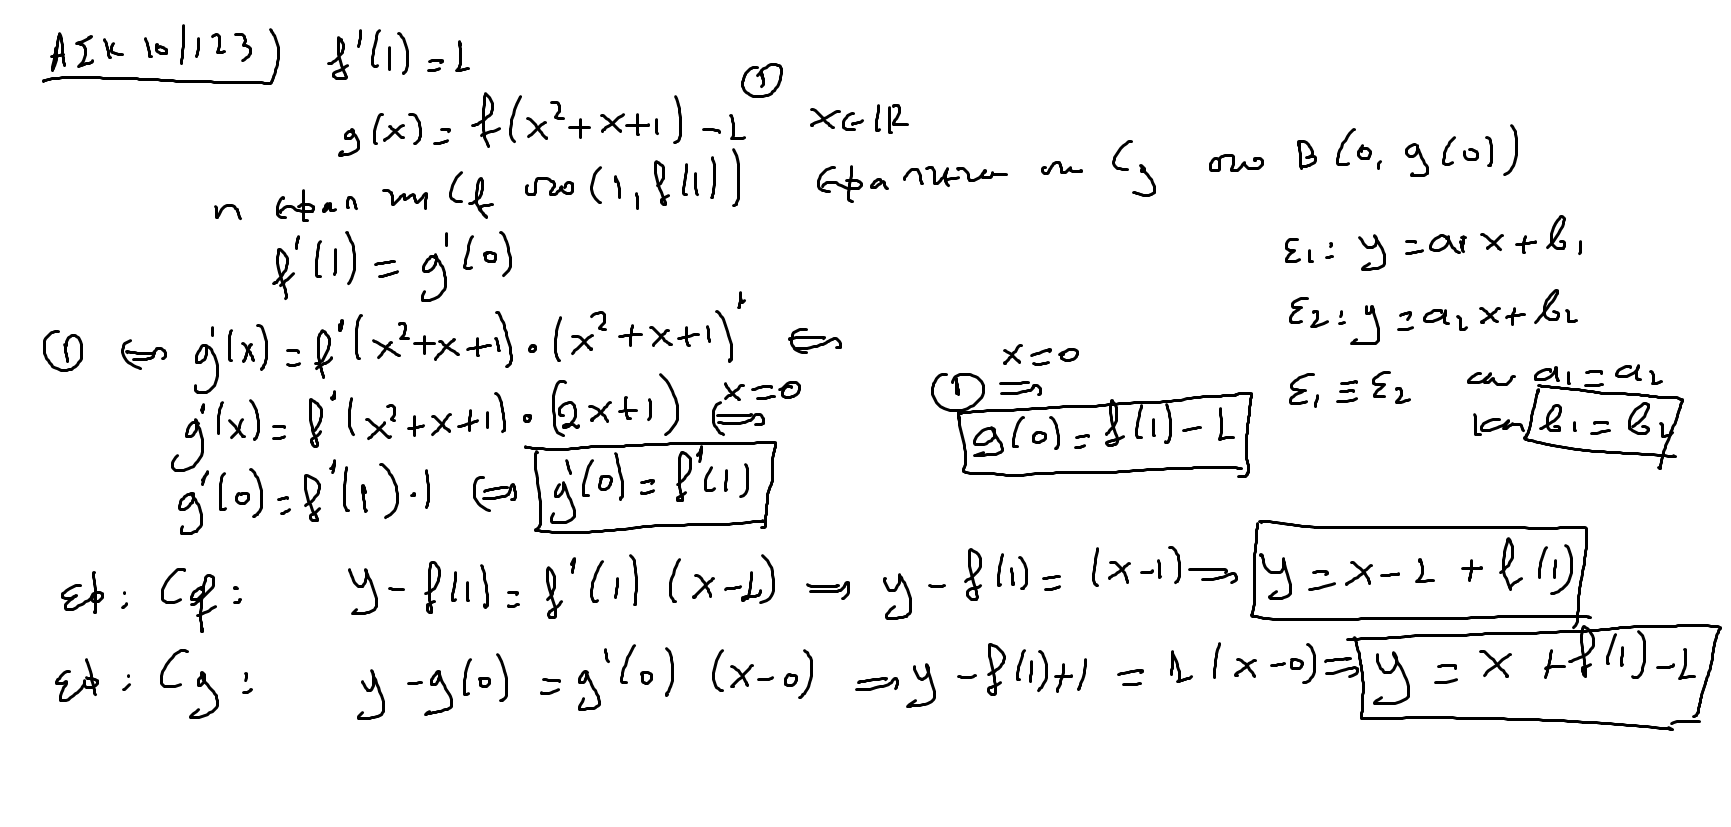 ΑΣΚ 10/123) f'(1) = 1
g(x) = f(x²+x+1) - 1 ① x∈ℝ
η εφαπ της Cf στο (1, f(1)) εφαπτεται στη Cg στο B(0, g(0))
f'(1) = g'(0)
ε₁: y = a₁x + b₁
ε₂: y = a₂x + b₂
① ⇔ g'(x) = f'(x²+x+1)·(x²+x+1)' ⇔
ε₁ ≡ ε₂ αν a₁ = a₂
g'(x) = f'(x²+x+1)·(2x+1) ⇔ x=0
① ⇒ x=0
και b₁ = b₂
g(0) = f(1) - 1
g'(0) = f'(1)·1 ⇔ g'(0) = f'(1)
εφ: Cf: y - f(1) = f'(1) (x-1) ⇒ y - f(1) = (x-1) ⇒ y = x - 1 + f(1)
εφ: Cg: y - g(0) = g'(0) (x-0) ⇒ y - f(1)+1 = 1 (x-0) ⇒ y = x + f(1) - 1